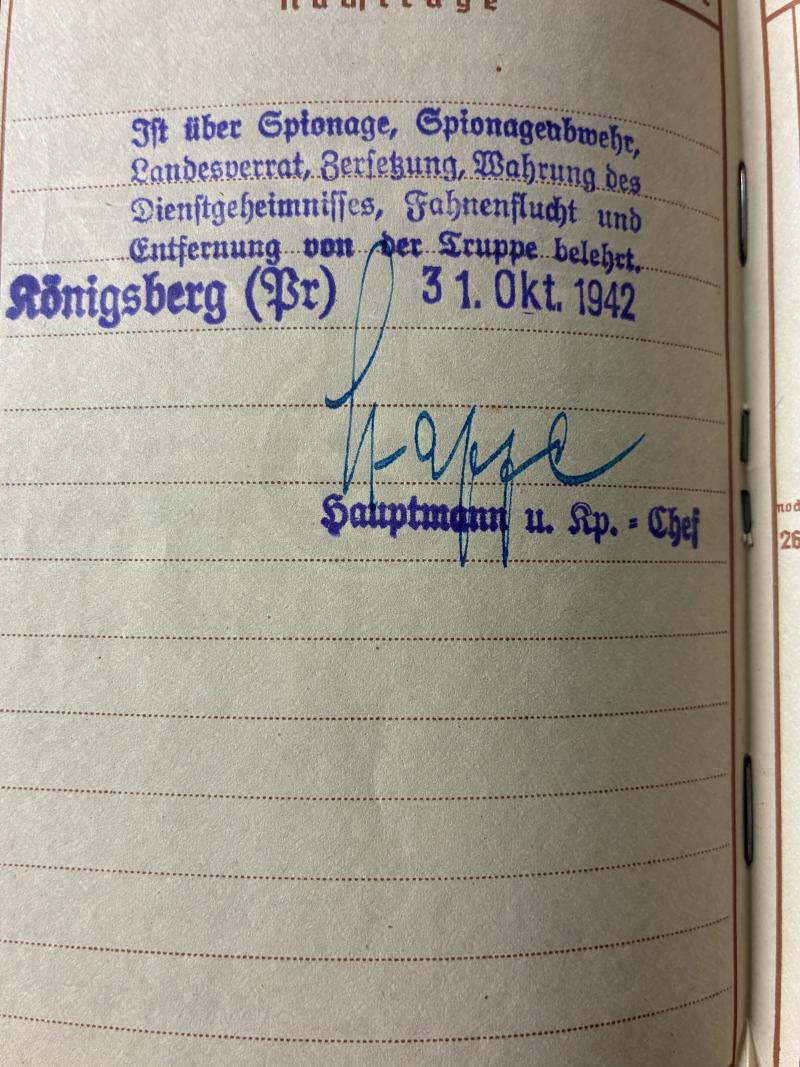 Nachträge
Ist über Spionage, Spionageabwehr,
Landesverrat, Zersetzung, Wahrung des
Dienstgeheimnisses, Fahnenflucht und
Entfernung von der Truppe belehrt.
Königsberg (Pr) 31. Okt. 1942
Hauptmann u. Kp. = Chef
26